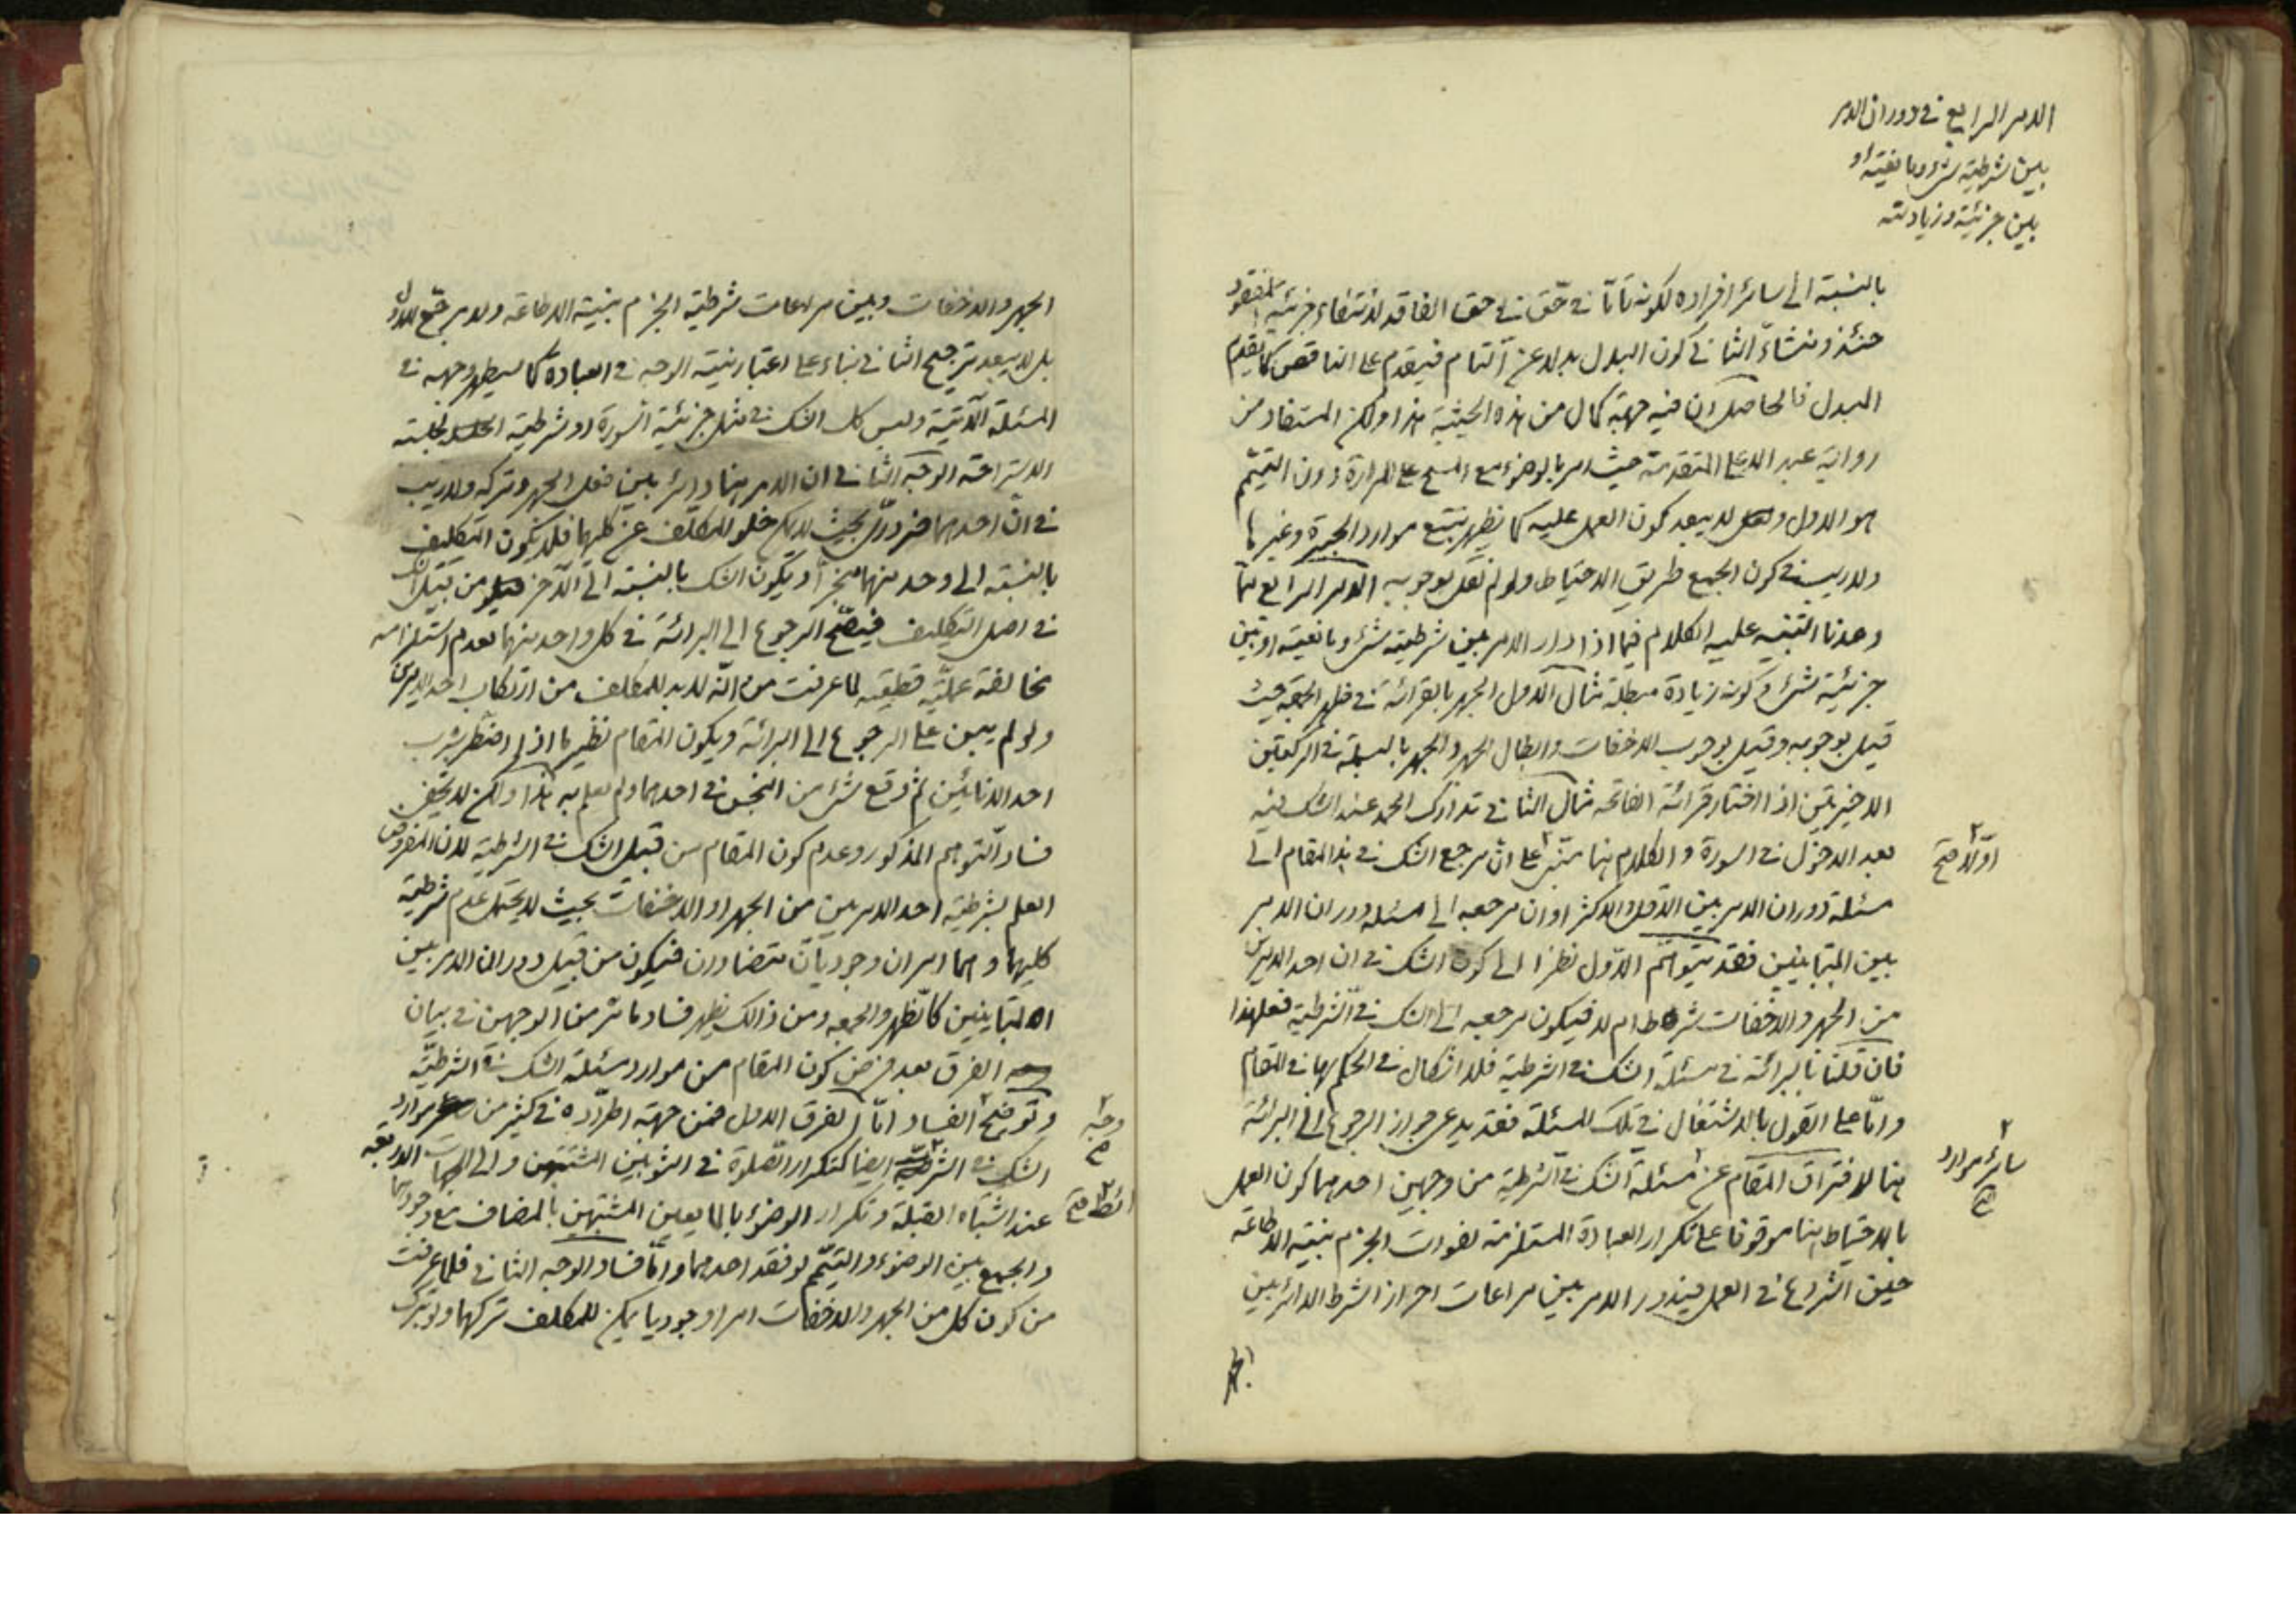 الامر الرابع في دوران الامر
بين شرطية شيء ومانعيته او
بين جزئية وزيادته
بالنسبة الى سائر افراده لكونه تامّا في حق الفاقد لانتفاء جزئية المفقود
حينئذ ومنشاء الثاني كون البدل بدلا عن التام فيقدم على الناقص كما يقدم
المبدل فالحاصل ان فيه جهة كمال من هذه الحيثية هذا ولكن المستفاد من
رواية عبد الاعلى المتقدمة حيث امر بالوضوء مع المسح على المرارة دون التيمّم
هو الاول و لا يبعد كون العمل عليه كما يظهر بتتبع موارد الجبيرة وغيرها
ولاريب في كون الجمع طريق الاحتياط ولو لم نقل بوجوبه الامر الرابع ممّا
وعدنا التنبيه عليه الكلام فيما اذا دار الامر بين شرطية شيء ومانعيته او بين
جزئية شيء و كونه زيادة مبطلة مثال الاول الجهر بالقرائة في ظهر الجمعة حيث
قيل بوجوبه وقيل بوجوب الاخفات وابطال الجهر والجهر بالبسملة في الركعتين
الاخيرتين اذا اختار قرائة الفاتحة مثال الثاني تدارك الحمد عند الشك فيه
بعد الدخول في السورة والكلام هنا مبتن على ان مرجع الشك في هذا المقام الى
اوّلا صح
مسئلة دوران الامر بين الاقل والاكثر او ان مرجعه الى مسئلة دوران الامر
بين المتباينين فقد يتوهّم الاوّل نظرا الى كون الشك في ان احد الامرين
من الجهر والاخفات شرط ام لا فيكون مرجعه الى الشك في الشرطية فعلى هذا
فان قلنا بالبرائة في مسئلة الشك في الشرطية فلا اشكال في الحكم بها في المقام
وامّا على القول بالاشتغال في تلك المسئلة فقد يدعى جواز الرجوع الى البرائة
هنا لافتراق المقام عن مسئلة الشك في الشرطية من وجهين احدهما كون العمل
سائر موارد
بالاحتياط هنا موقوفا على تكرار العبادة المستلزمة لفوات الجزم بنية الاطاعة
حين الشروع في العمل فيدور الامر بين مراعات احراز الشرط الدائر بين
الجهر
الجهر والاخفات وبين مراعات شرطية الجزم بنية الاطاعة ولا مرجّح للاول
بل لا يبعد ترجيح الثاني بناء على اعتبار نية الوجه في العبادة كما سيظهر وجهه في
المسئلة الآتية وليس كل الشك في مثل جزئية السورة او شرطية لجلسة
الاستراحة الوجه الثاني ان الامر هنا دائر بين فعل الجهر وتركه ولاريب
في ان احدهما ضروريّ بحيث لا يمكن خلو المكلف عن كليهما فلا يكون التكليف
بالنسبة الى واحد منهما منجزا ويكون الشك بالنسبة الى الآخر من قبيل الشك
في اصل التكليف فيصحّ الرجوع الى البرائة في كل واحد منهما لعدم استلزامه
مخالفة عمليّة قطعية لما عرفت من انّه لابد للمكلف من ارتكاب احد الامرين
ولو لم يبن على الرجوع الى البرائة ويكون المقام نظير ما اذا اضطر بشرب
احد الانائين ثم وقع شيء من النجس في احدهما ولم يعلم به هذا ولكن لا يخفى
فساد التوهم المذكور وعدم كون المقام من قبيل الشك في الشرطية لان المفروض
العلم بشرطية احد الامرين من الجهر او الاخفات بحيث لا يحتمل عدم شرطية
كليهما وهما امران وجوديان متضادان فيكون من قبيل دوران الامر بين
المتباينين كالظهر والجمعه ومن ذالك يظهر فساد ما مر من الوجهين في بيان
الفرق بعد فرض كون المقام من موارد مسئلة الشك في الشرطيّة
وتوضيح الفساد امّا الفرق الاول فمن جهة اطراده في كثير من موارد
وجه
صح
الشك في الشرطية ايضا كتكرار الصلوة في الثوبين المشتبهين والى الجهات الاربعة
عند اشتباه القبلة وتكرار الوضوء بالمايعين المشتبهين بالمضاف مع وجودهما
والجمع بين الوضوء والتيمّم لو فقد احدهما وامّا فساد الوجه الثاني فلما عرفت
من كون كل من الجهر والاخفات امرا وجوديا يمكن للمكلف تركهما ولو بترك